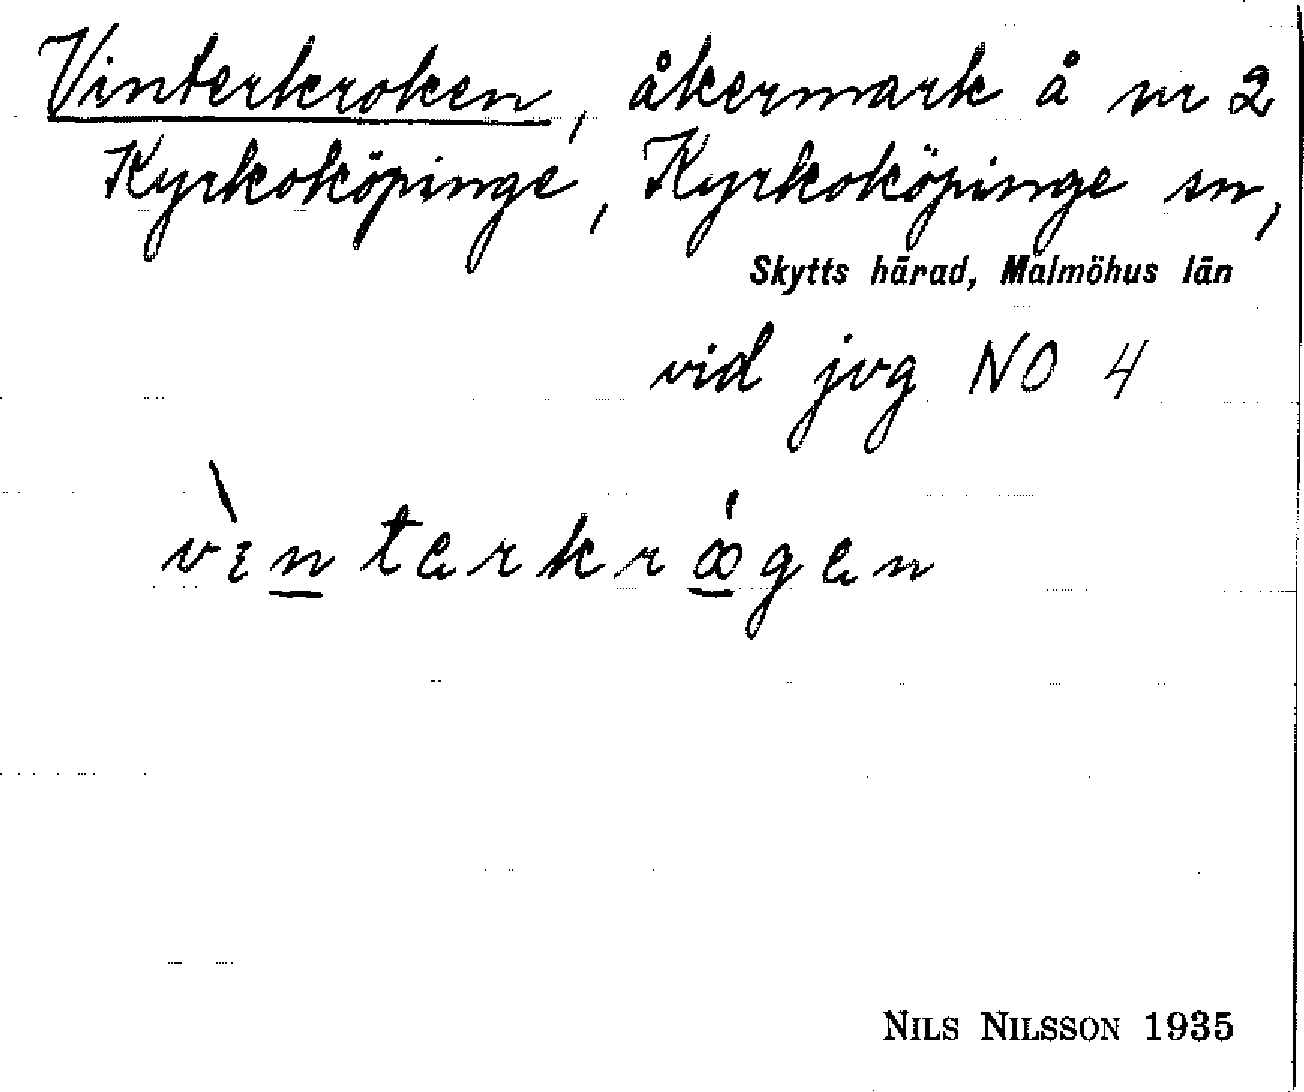 Vinterkroken, åkermark å nr 2
Kyrkoköpinge, Kyrkoköpinge sn,
Skytts härad, Malmöhus län
vid jvg NO 4
NILS NILSSON 1935